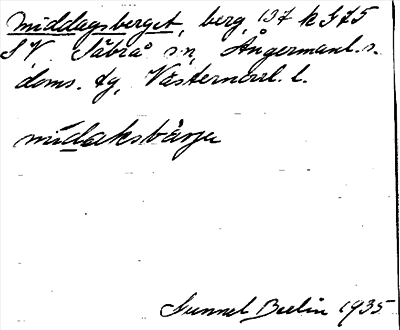 Middagsberget, berg, 137 k G 75
SV Säbrå sn, Ångermanl. s.
doms. fg, Västernorrl. l.
middaksbärje
Gunnel Beelin 1935